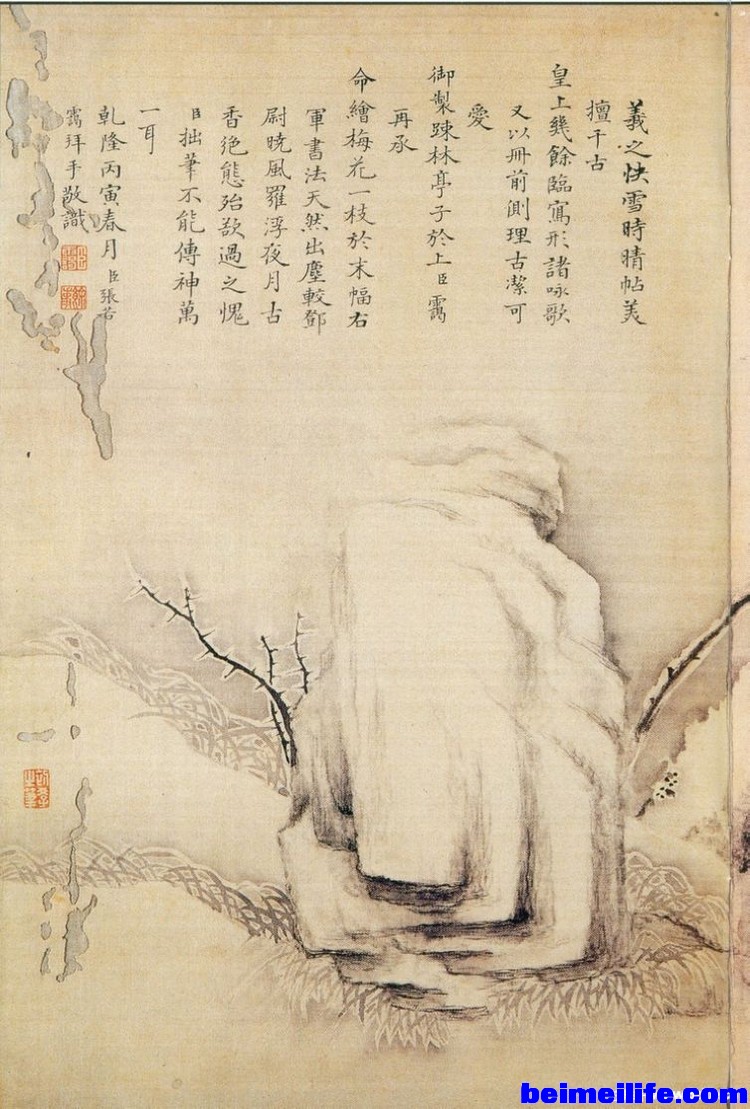 羲之快雪時晴帖美
擅千古
皇上幾餘臨寫形諸咏歌
又以冊前側理古潔可
愛
御製踈林亭子於上臣靄
再承
命繪梅花一枝於末幅右
軍書法天然出塵較鄧
尉曉風羅浮夜月古
香絕態殆欲過之愧
臣拙筆不能傳神萬
一耳
乾隆丙寅春月臣張若
靄拜手敬識
beimeilife.com